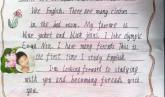 like English. There are many clothes
in the old room. My favourite is
blue jacket and black jeans. I like
I have many friends This is
the first time I study English
I'm looking forward to studying
with you and becoming friends with
you.